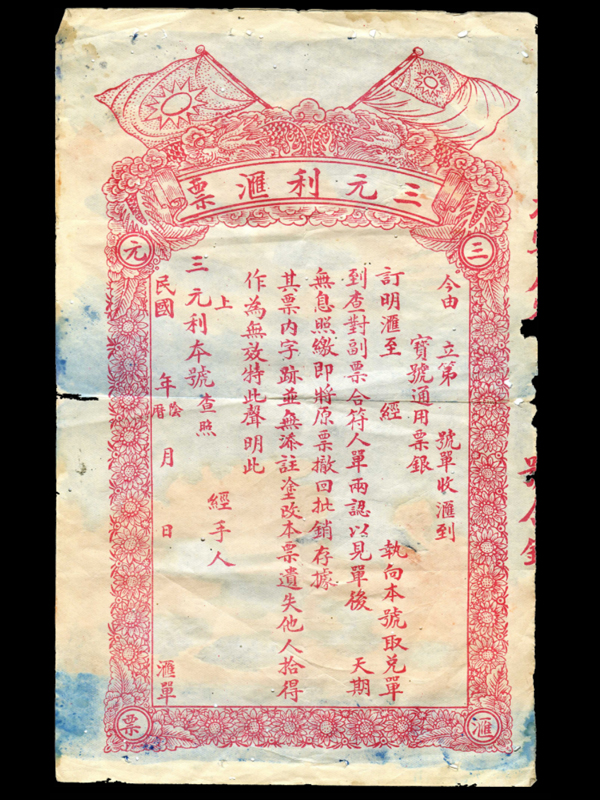 三元利滙票
三
元
今由 立第 號單收滙到
寶號通用票銀
訂明滙至 經 執向本號取兌單
到查對副票合符人單兩認以見單後 天期
無息照繳即將原票撤回批銷存據
其票內字跡並無添註塗改本票遺失他人拾得
作為無效特此聲明此
上
三元利本號查照 經手人
民國 年陰曆 月 日 滙單
滙
票